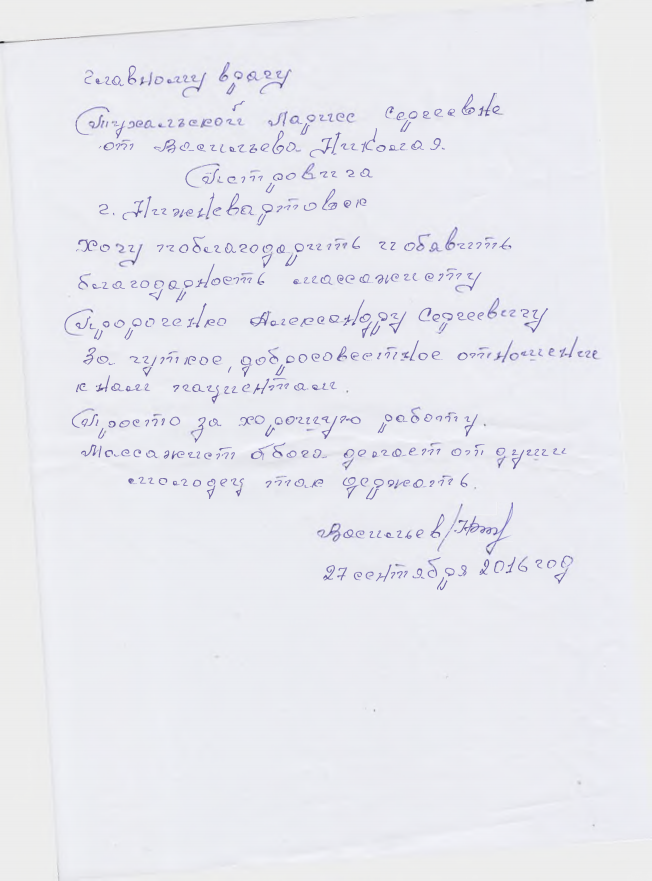 главному врачу
Пужальской Ларисе Сергеевне
от Васильева Николая
Петровича
г. Нижневартовск
Хочу поблагодарить и обявить
благодарность массажисту
Александру Сергеевичу
За чуткое, добросовестное отношение
к нам пациентам.
Просто за хорошую работу.
Массажист делает от души
молодец так держать.
Васильев
27 сентября 2016 год